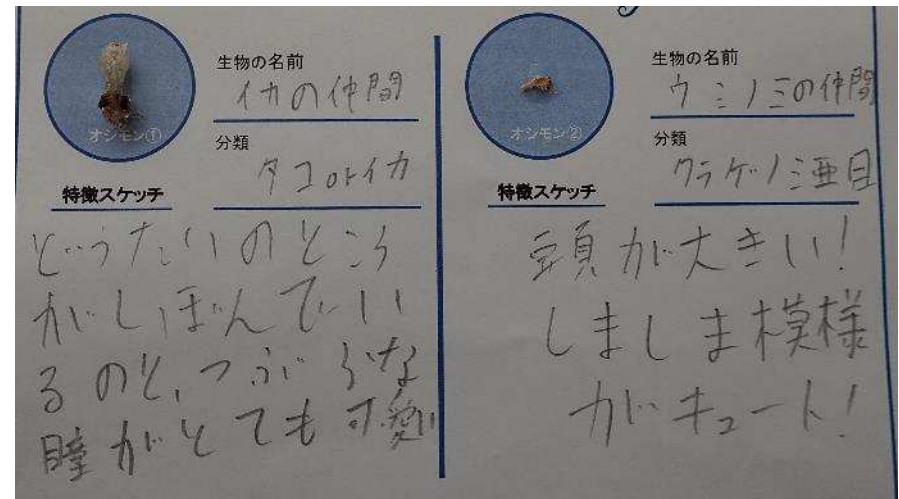 オシモン①
生物の名前
イカの仲間
分類
タコorイカ
特徴スケッチ
どうたいのところ
がしぼんでい
るのと、つぶらな
瞳がとても可愛い
オシモン②
生物の名前
ウミノミの仲間
分類
クラゲノミ亜目
特徴スケッチ
頭が大きい!
しましま模様
がキュート!